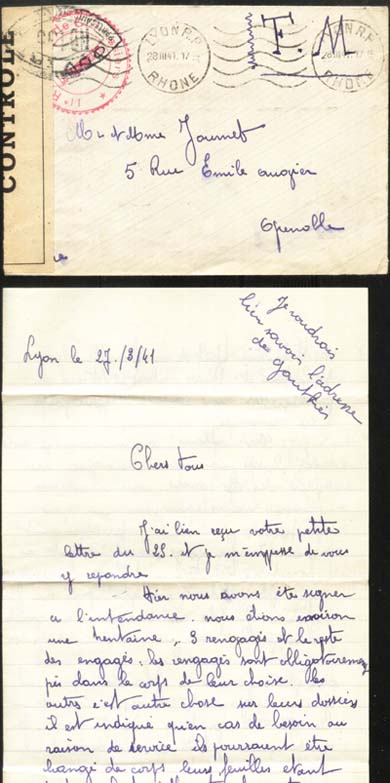 CONTROLE
LYON R.P.
28 III 41. 17
RHONE
F. M
RHONE
Mr et Mme Journet
5 Rue Emile augier
Grenoble
Je voudrais
bien savoir l'adresse
des gauthier
Lyon le 27./3/41
Chers tous
J'ai bien reçu votre petite
lettre du 25. et je m'empresse de vous
y repondre
Hier nous avons étés signer
a l'intendance. nous étions environ
une trentaine, 3 rengagés et le reste
des engagés; les rengagés sont obligatoirement
pris dans le corps de leur choise. les
autres c'est autre chose sur leurs dossiers
il est indiqué qu'en cas de besoin au
raison de service ils pourraient être
changé de corps leurs feuilles étant